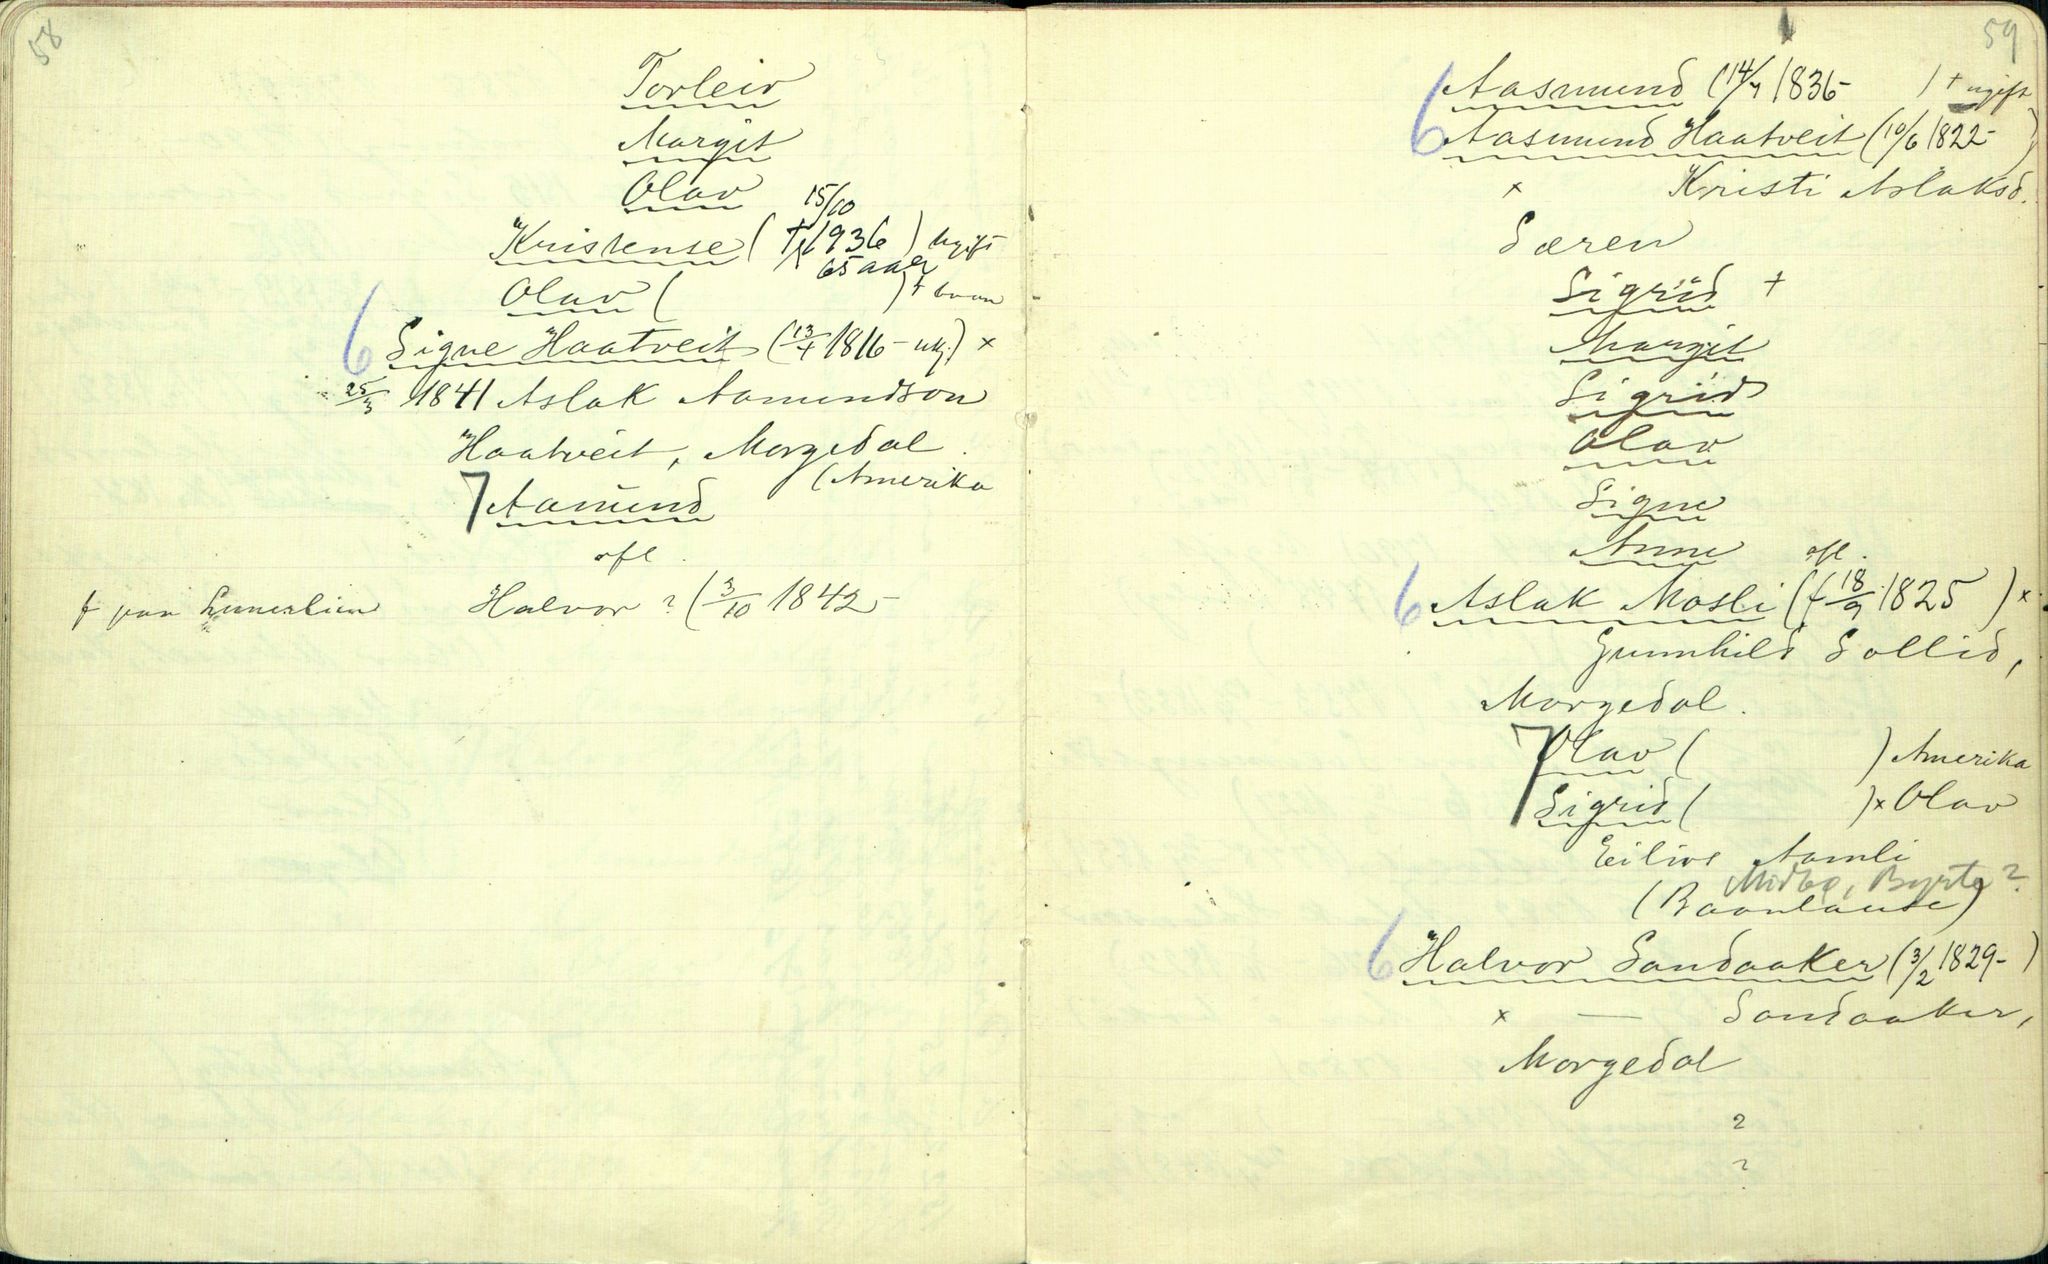 58
Torleiv
Margit
Olav
15/10
Kristense ( † 1936 ) Ugift
65 aar
Olav ( ) † barn
6 Signe Haatveit (13/4 1816 - ukj.) ×
25/3 1841 Aslak Aamundson
Haatveit, Morgedal.
(Amerika
7 Aamund
ofl.
f paa Halvor ? (3/10 1842 -
59
6 Aasmund (14/7 1836 - ) † ugift
6 Aasmund Haatveit (10/6 1822 - )
× Kristi Aslaksd.
Søren
Sigrid †
Margit
Sigrid
Olav
Signe
Anne ofl.
6 Aslak Mosli (f 18/9 1825 ) ×
Gunnhild Sollid,
Morgedal.
7 Olav ( ) Amerika
Sigrid ( ) × Olav
Eilivs Aamli
Midbø, Byrte ?
(Baanlause)
6 Halvor Sandaaker (3/2 1829 - )
× — Sandaaker,
Morgedal
?
?